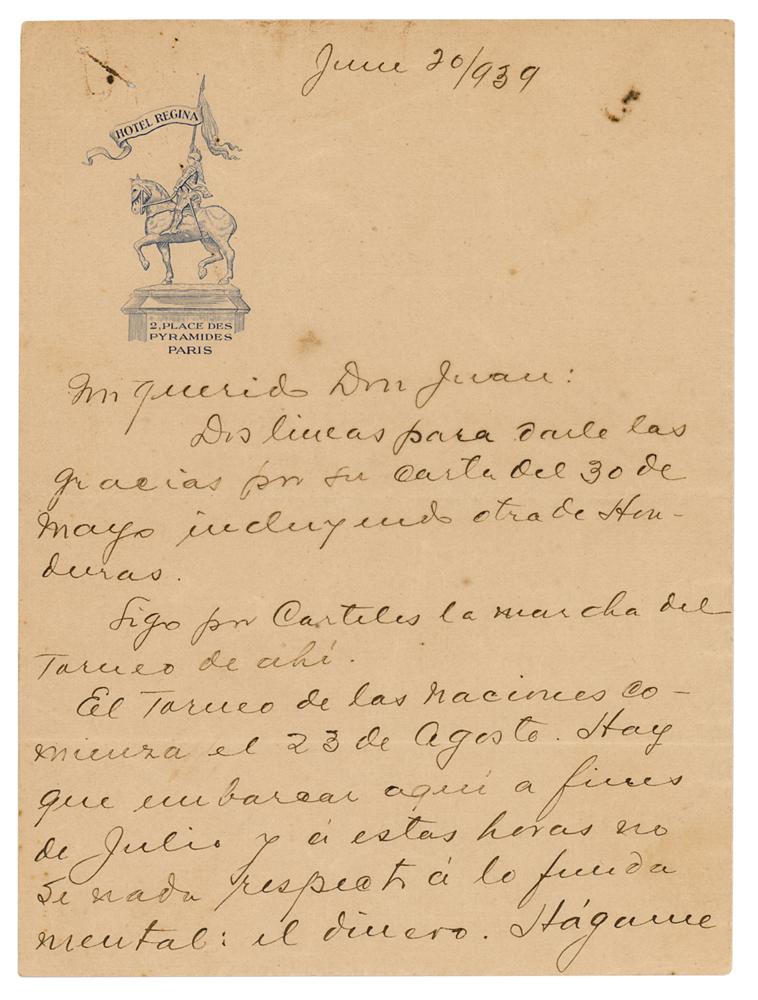 June 20/939
HOTEL REGINA
2, PLACE DES
PYRAMIDES
PARIS
Mi querido Don Juan:
Dos lineas para darle las
gracias por su carta del 30 de
Mayo incluyendo otra de Hon-
duras.
Sigo por Carteles la marcha del
Torneo de ahí.
El Torneo de las Naciones co-
mienza el 23 de Agosto. Hay
que embarcar aquí a fines
de Julio y á estas horas no
se nada respecto á lo funda
mental: el dinero. Hágame